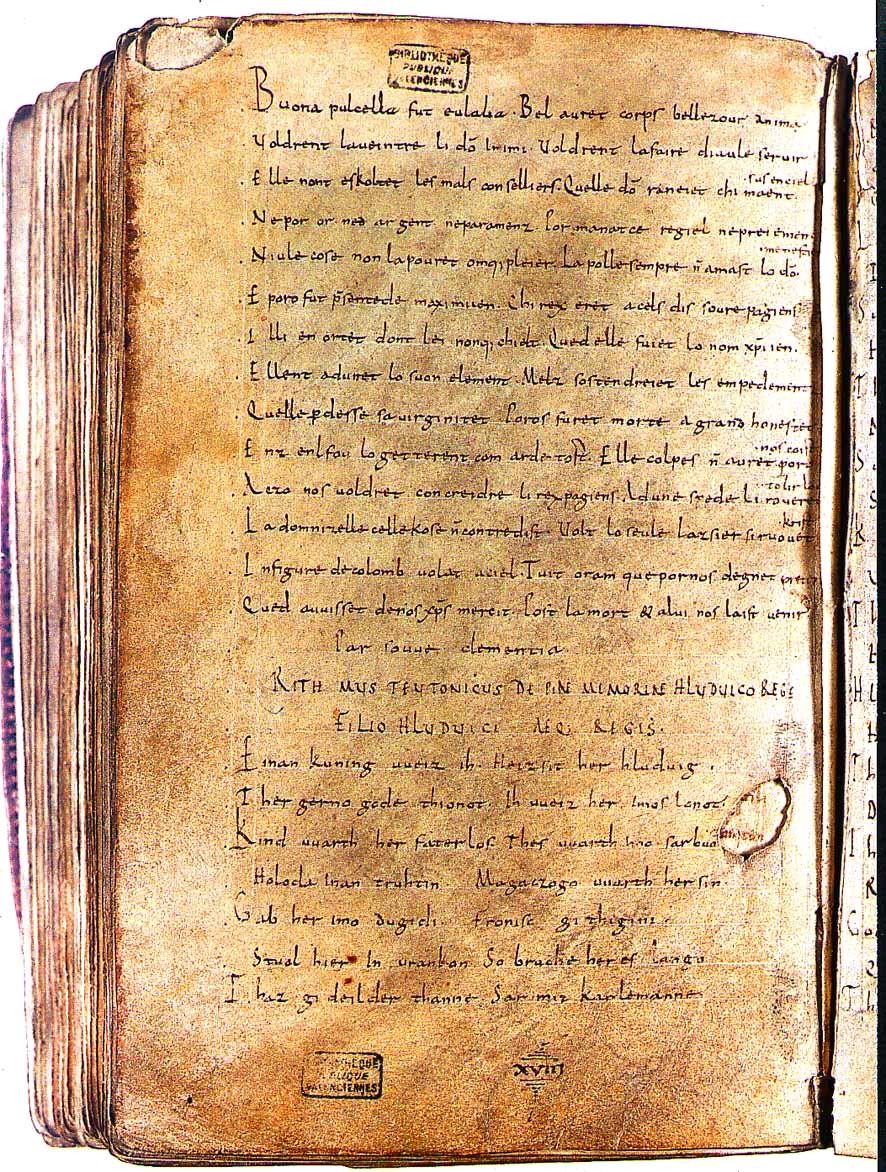 BIBLIOTHEQUE
PUBLIQUE
VALENCIENNES
Buona pulcella fut eulalia. Bel auret corps bellezour anima
Voldrent laveintre li dō inimi. Voldrent lafaire diaule servir
Elle nont eskoltet les mals conselliers. Quelle dō raneiet chi maent
sus en ciel
Ne por or ned argent ne paramenz. Por manatce regiel ne preiement
Niule cose non la pouret omq; pleier. La polle sempre n̄ amast lo dō
menestier
E poro fut p̄sentede maximiien. Chi rex eret a cels dis soure pagiens
Illi en ortet dont lei nonq; chielt. Qued elle fuiet lo nom xp̄iien.
Ellent adunet lo suon element. Melz sostendreiet les empedementz
Quelle p̱desse sa virginitet. Poros furet morte a grand honestet
Enz enl fou lo getterent com arde tost. Elle colpes n̄ auret por
nos coist
A czo nos voldret concreidre li rex pagiens. Ad une spede li roveret
tolir lo
La domnizelle celle kose n̄ contredist. Volt lo seule lazsier si ruovet
krist
In figure de colomb volat a ciel. Tuit oram que por nos degnet preier
Qued auuisset de nos xp̄s mercit. Post la mort & a lui nos laist venir
Par souue clementia
RITHMUS TEUTONICUS DE PIAE MEMORIAE HLUDUICO REGE
FILIO HLUDUICI AEQ; REGIS.
Einan kuning uueiz ih. Heizsit her hluduig.
Ther gerno gode thionot. Ih uueiz her imos lonot.
Kind uuarth her faterlos. Thes uuarth imo sar buoz
Holoda inan truhtin. Magaczogo uuarth her sin.
Gab her imo dugidi. Fronisc githigini.
Stual hier In urankon. So bruche her es lango
Thaz gideilder thanne. Sar mit karlemanne
BIBLIOTHEQUE
PUBLIQUE
VALENCIENNES
XVIII